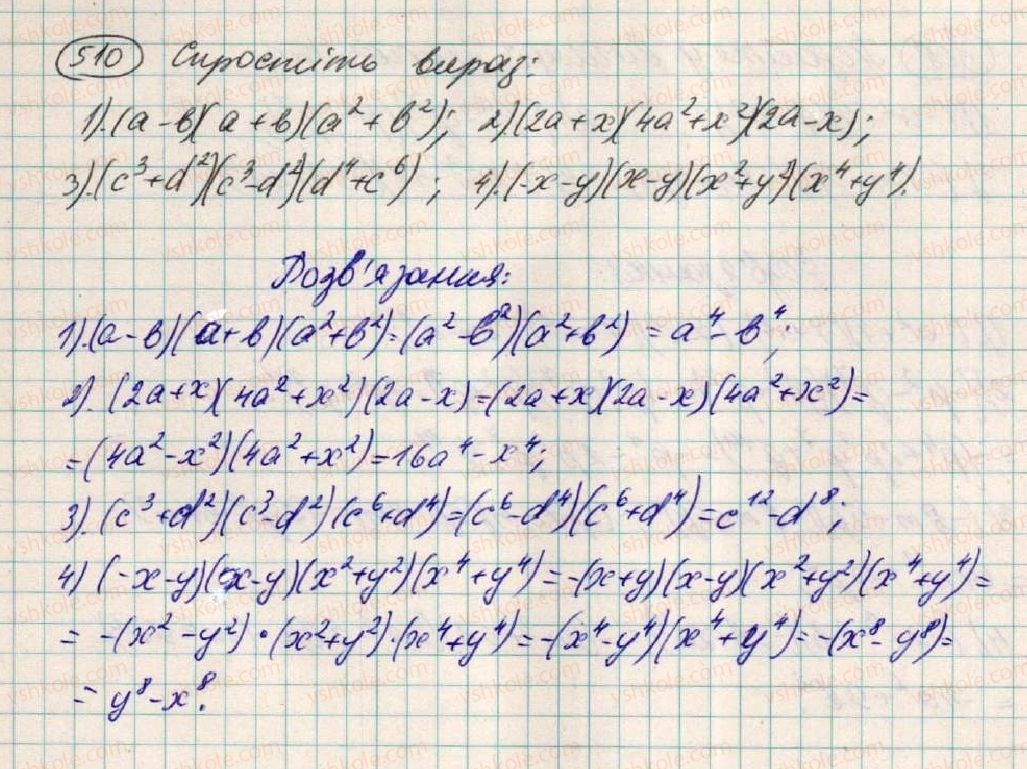 510 Спростіть вираз:
1).(a-в)(a+в)(a²+в²); 2).(2a+x)(4a²+x²)(2a-x);
3).(c³+d²)(c³-d²)(d⁴+c⁶); 4).(-x-y)(x-y)(x²+y²)(x⁴+y⁴).
Розв'язання:
1).(a-в)(a+в)(a²+в²)=(a²-в²)(a²+в²)=a⁴-в⁴;
2).(2a+x)(4a²+x²)(2a-x)=(2a+x)(2a-x)(4a²+x²)=
=(4a²-x²)(4a²+x²)=16a⁴-x⁴;
3).(c³+d²)(c³-d²)(c⁶+d⁴)=(c⁶-d⁴)(c⁶+d⁴)=c¹²-d⁸;
4) (-x-y)(x-y)(x²+y²)(x⁴+y⁴)=-(x+y)(x-y)(x²+y²)(x⁴+y⁴)=
= -(x²-y²)·(x²+y²)·(x⁴+y⁴)=-(x⁴-y⁴)(x⁴+y⁴)=-(x⁸-y⁸)=
= y⁸-x⁸.